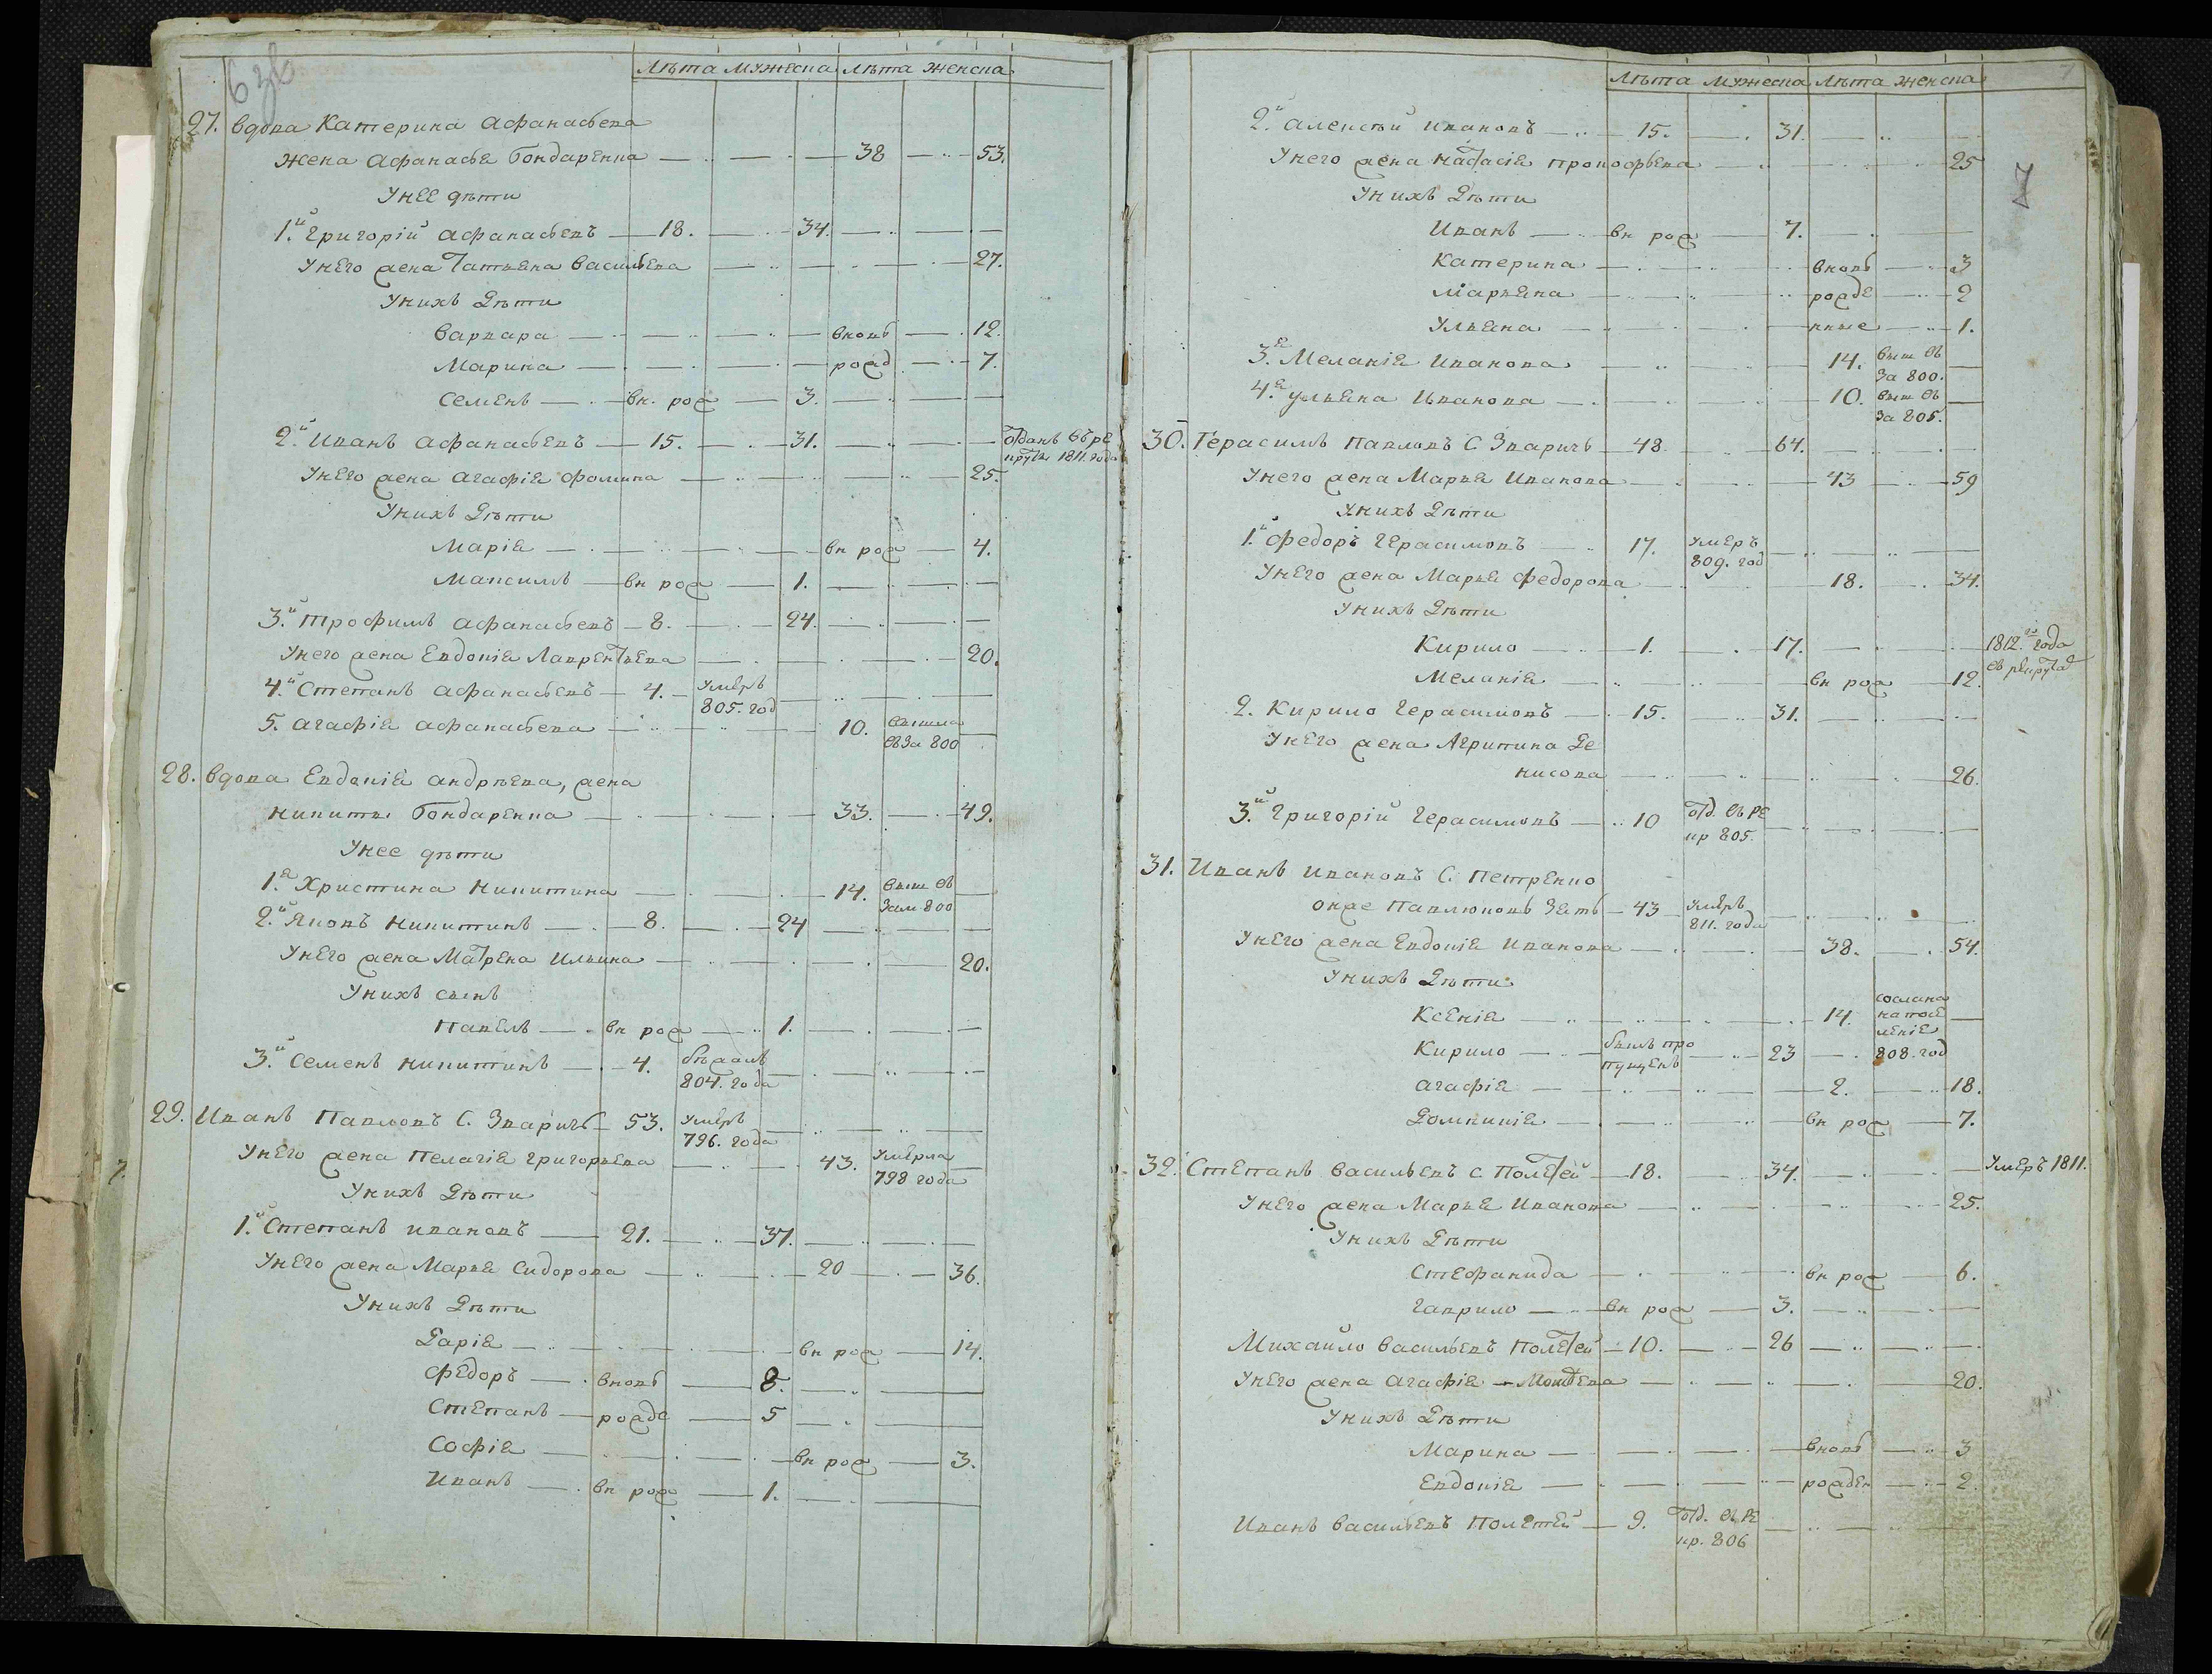 Лѣта мужеска Лѣта женска
27. вдова Катерина Афанасьева
жена Афанасья Бондаренка 38 53.
У нее дѣти
1.й Григорій Афанасьевъ 18. 34.
У него жена Татьяна Васильева 27.
У нихъ дѣти
Варвара вновь 12.
Марина рожд 7.
Семенъ вн. рож 3.
2.й Иванъ Афанасьевъ 15. 31. отданъ въ ре
круты 1811. года
У него жена Агафія Фомина 25.
У нихъ дѣти
Марія вн рож 4.
Максимъ вн рож 1.
3.й Трофимъ Афанасьевъ 8. 24.
У него жена Евдокія Лаврентьева 20.
4.й Степанъ Афанасьевъ 4. умеръ
805. год
5. Агафія Афанасьева 10. вышла
въ За 800
28. вдова Евдокія Андрѣева, жена
Никиты Бондаренка 33. 49.
У нее дѣти
1.я Христина Никитина 14. выш въ
Зам. 800
2.й Яковъ Никитинъ 8. 24
У него жена Матрена Ильина 20.
У нихъ сынъ
Павелъ вн рож 1.
3.й Семенъ Никитинъ 4. бѣжалъ
804. года
29. Иванъ Павловъ С. Зваричъ 53. умеръ
796. года
У него жена Пелагія Григорьева 43. умерла
798 года
У нихъ дѣти
1.й Степанъ Ивановъ 21. 37.
У него жена Марья Сидорова 20 36.
У нихъ дѣти
Дарія вн рож 14.
Федоръ вновь 8.
Степанъ рожде 5
Софія вн рож 3.
Иванъ вн рож 1.
7
Лѣта мужеска Лѣта женска
2.й Алексѣй Ивановъ 15. 31.
У него жена Настасія Прокофьева 25
У нихъ дѣти
Иванъ вн рож 7.
Катерина вновь 3
Марьяна рожде 2
Ульяна нные 1.
3.я Меланія Иванова 14. выш въ
За 800.
4.я Ульяна Иванова 10. выш въ
За 805.
30. Герасимъ Павловъ С Зваричъ 48 64.
У него жена Марья Иванова 43 59
У нихъ дѣти
1.й Федоръ Герасимовъ 17. умеръ
809. год
У него жена Марья Федорова 18. 34.
У нихъ дѣти
Кирило 1. 17. 1812.го года
въ рекрута
Меланія вн рож 12.
2. Кирило Герасимовъ 15. 31.
У него жена Агрипина Де
нисова 26.
3.й Григорій Герасимовъ 10 отд. въ ре
кр 805.
31. Иванъ Ивановъ С. Петренко
онже Павлюковъ Зять 43 умеръ
811. года
У него жена Евдокія Иванова 38. 54.
У нихъ дѣти
Ксенія 14. сослана
на посе
леніе
808. год
Кирило былъ про
пущенъ 23
Агафія 2. 18.
Домникія вн рож 7.
32. Степанъ Васильевъ С Полетей 18. 34. умеръ 1811.
У него жена Марья Иванова 25.
У нихъ дѣти
Стефанида вн рож 6.
Гаврило вн рож 3.
Михайло Васильевъ Полетей 10. 26
У него жена Агафія 20.
У нихъ дѣти
Марина вновь 3
Евдокія рожден 2.
Иванъ Васильевъ Полетей 9. отд. въ ре
кр. 806